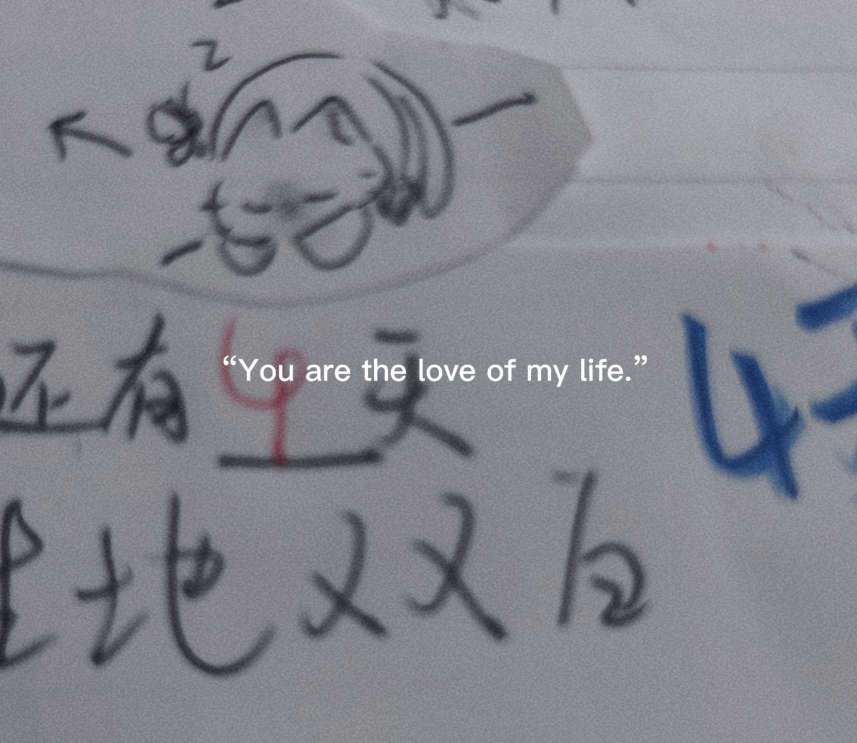 还有4天 4
“You are the love of my life.”
地双百